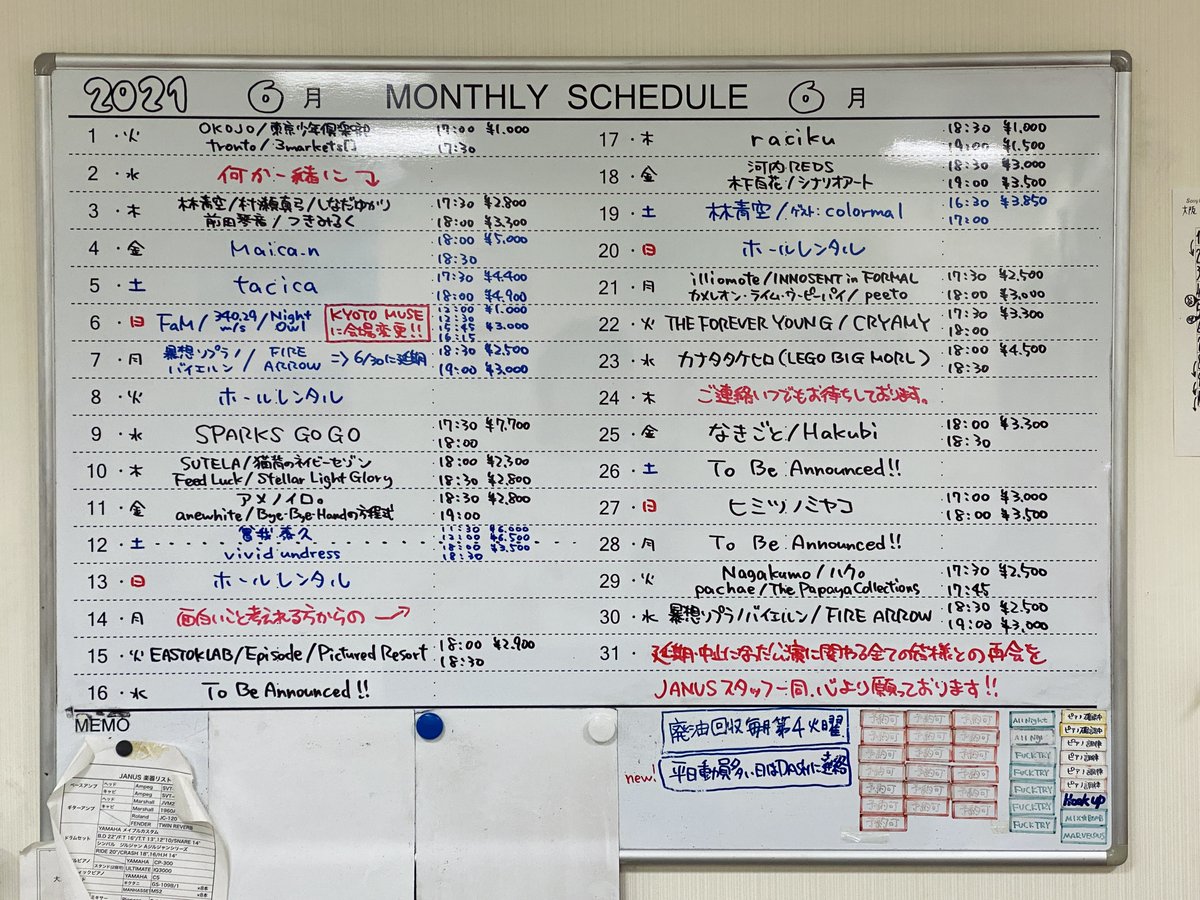 2021 6月 MONTHLY SCHEDULE 6月
1・火 OKOJO/東京少年倶楽部 17:00 ¥1.000
tronto/3markets[] 17:30
2・水 何か一緒に
3・木 林青空/村瀬真弓/しなだゆかり 17:30 ¥2.800
前田琴音/つきみるく 18:00 ¥3.300
4・金 Maica_n 18:00 ¥5.000
18:30
5・土 tacica 17:30 ¥4.400
18:00 ¥4.900
6・日 FaM/340.29m/s/Night Owl KYOTO MUSEに会場変更!! 12:00 ¥1.000
12:30
15:45 ¥3.000
16:15
7・月 暴想ソプラノ/バイエルン/FIRE ARROW ⇒6/30に延期 18:30 ¥2.500
19:00 ¥3.000
8・火 ホールレンタル
9・水 SPARKS GO GO 17:30 ¥7.700
18:00
10・木 SUTELA/猫背のネイビーセゾン 18:00 ¥2.300
Feed Luck/Stellar Light Glory 18:30 ¥2.800
11・金 アメノイロ。 18:30 ¥2.800
anewhite/Bye-Bye-Handの方程式 19:00
12・土 曽我泰久 11:30 ¥6.000
12:00 ¥6.500
vivid undress 18:00 ¥3.500
18:30
13・日 ホールレンタル
14・月 面白いこと考えれる方からの
15・火 EASTOKLAB/Episode/Pictured Resort 18:00 ¥2.900
18:30
16・水 To Be Announced!!
17・木 raciku 18:30 ¥1.000
19:00 ¥1.500
18・金 河内REDS 18:30 ¥3.000
木下百花/シナリオアート 19:00 ¥3.500
19・土 林青空/ゲスト:colormal 16:30 ¥3.850
17:00
20・日 ホールレンタル
21・月 illiomote/INNOSENT in FORMAL 17:30 ¥2.500
カメレオン・ライム・ウーピーパイ/peeto 18:00 ¥3.000
22・火 THE FOREVER YOUNG/CRYAMY 17:30 ¥3.300
18:00
23・水 カナタタケヒロ(LEGO BIG MORL) 18:00 ¥4.500
18:30
24・木 ご連絡いつでもお待ちしております。
25・金 なきごと/Hakubi 18:00 ¥3.300
18:30
26・土 To Be Announced!!
27・日 ヒミツノミヤコ 17:00 ¥3.000
18:00 ¥3.500
28・月 To Be Announced!!
29・火 Nagakumo/ハク。 17:30 ¥2.500
pachae/The Papaya Collections 17:45
30・水 暴想ソプラノ/バイエルン/FIRE ARROW 18:30 ¥2.500
19:00 ¥3.000
31・ 延期・中止になった公演に関わる全ての皆様との再会を
JANUSスタッフ一同、心より願っております!!
MEMO
廃油回収毎月第4火曜
new! 平日動員多い日はDASKに連絡
予約可 予約可 予約可
予約可 予約可 予約可
予約可 予約可 予約可
予約可 予約可 予約可
予約可 予約可 予約可
予約可 予約可 予約可
予約可
All Night
FUCKTRY
FUCKTRY
FUCKTRY
FUCKTRY
ピアノ調律
ピアノ調律
ピアノ調律
ピアノ調律
Hook up
MIX@BOOB
MARVELOUS
JANUS 楽器リスト
ベースアンプ ヘッド Ampeg SVT-
キャビ Ampeg SVT-
ギターアンプ ヘッド Marshall JVM2
キャビ Marshall 1960
Roland JC-120
FENDER TWIN REVERB
ドラムセット YAMAHA メイプルカスタム
B.D 22"/F.T 16"/T.T 13",12"10/SNARE 14"
シンバル ジルジャン Aジルジャンシリーズ
RIDE 20"/CRASH 18",16/H.H 14"
YAMAHA CP-300
ULTIMATE IQ3000
YAMAHA C5
大阪